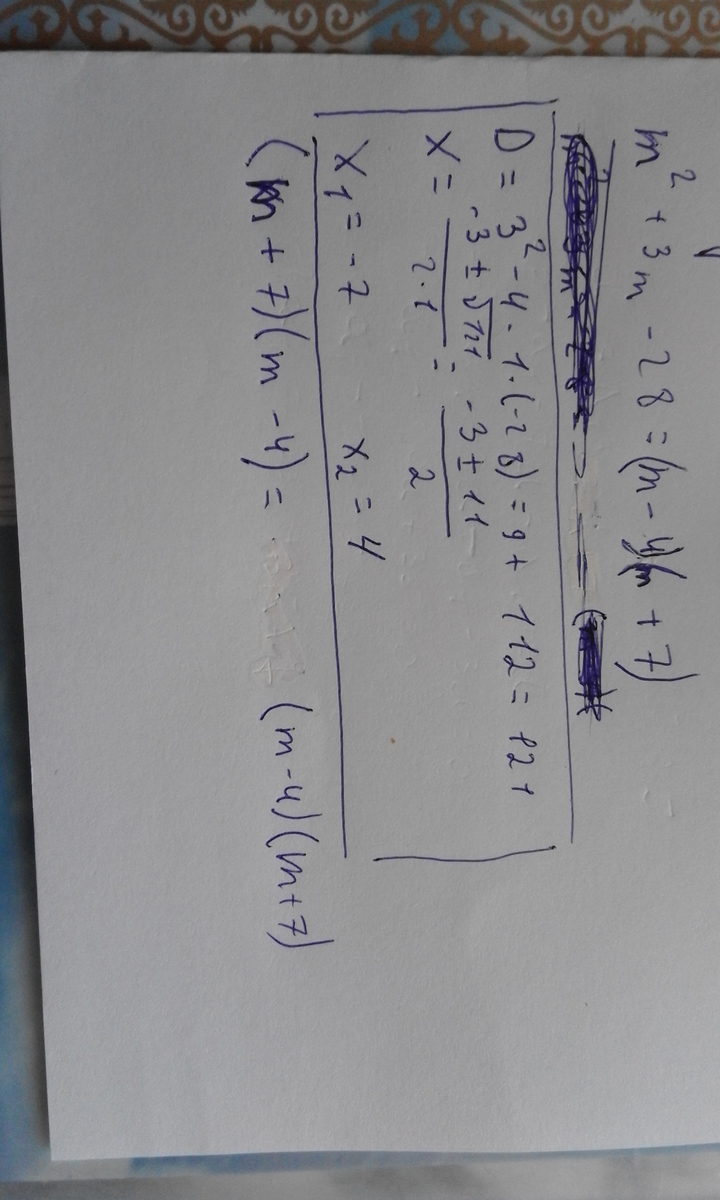 m² + 3m - 28 = (m - 4)(m + 7)
D = 3² - 4 · 1 · (-28) = 9 + 112 = 121
x = \frac{-3 ± √121}{2·1} = \frac{-3 ± 11}{2}
x₁ = -7 x₂ = 4
(m + 7)(m - 4) = (m - 4)(m + 7)